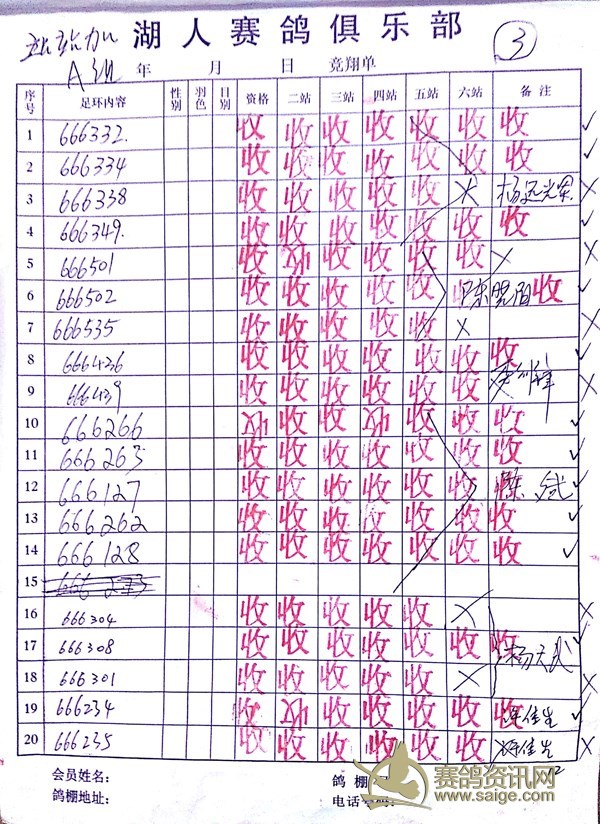 站站加 湖人赛鸽俱乐部 ③
A组 年 月 日 竞翔单
序号 足环内容 性别 羽色 日别 资格 二站 三站 四站 五站 六站 备注
1 666332. 收 收 收 收 收 收 收 ✓
2 666334 收 收 收 收 收 收 收 ✓
3 666338 收 收 收 收 收 × 杨远光军 ×
4 666349. 收 收 收 收 收 收 收 ✓
5 666501 收 收 收 收 收 收 × ×
6 666502 收 收 收 收 收 收 陈 收 ✓
7 666535 收 收 收 收 收 × ×
8 666436 收 收 收 收 收 收 收 ✓
9 666439 收 收 收 收 收 收 ×
10 666266 收 收 收 收 收 收 收 ✓
11 666263 收 收 收 收 收 收 收 ✓
12 666127 收 收 收 收 收 收 陈 ✓
13 666262 收 收 收 收 收 收 收 ✓
14 666128 收 收 收 收 收 收 收 ✓
15 666273
16 666304 收 收 收 收 收 × ×
17 666308 收 收 收 收 收 收 收 杨 ✓
18 666301 收 收 收 收 收 × ×
19 666234 收 收 收 收 收 收 收 佳生 ✓
20 666235 收 收 收 收 收 收 × 佳生 ×
12
会员姓名: 鸽棚
鸽棚地址: 电话号码:
赛鸽资讯网
www.saige.com